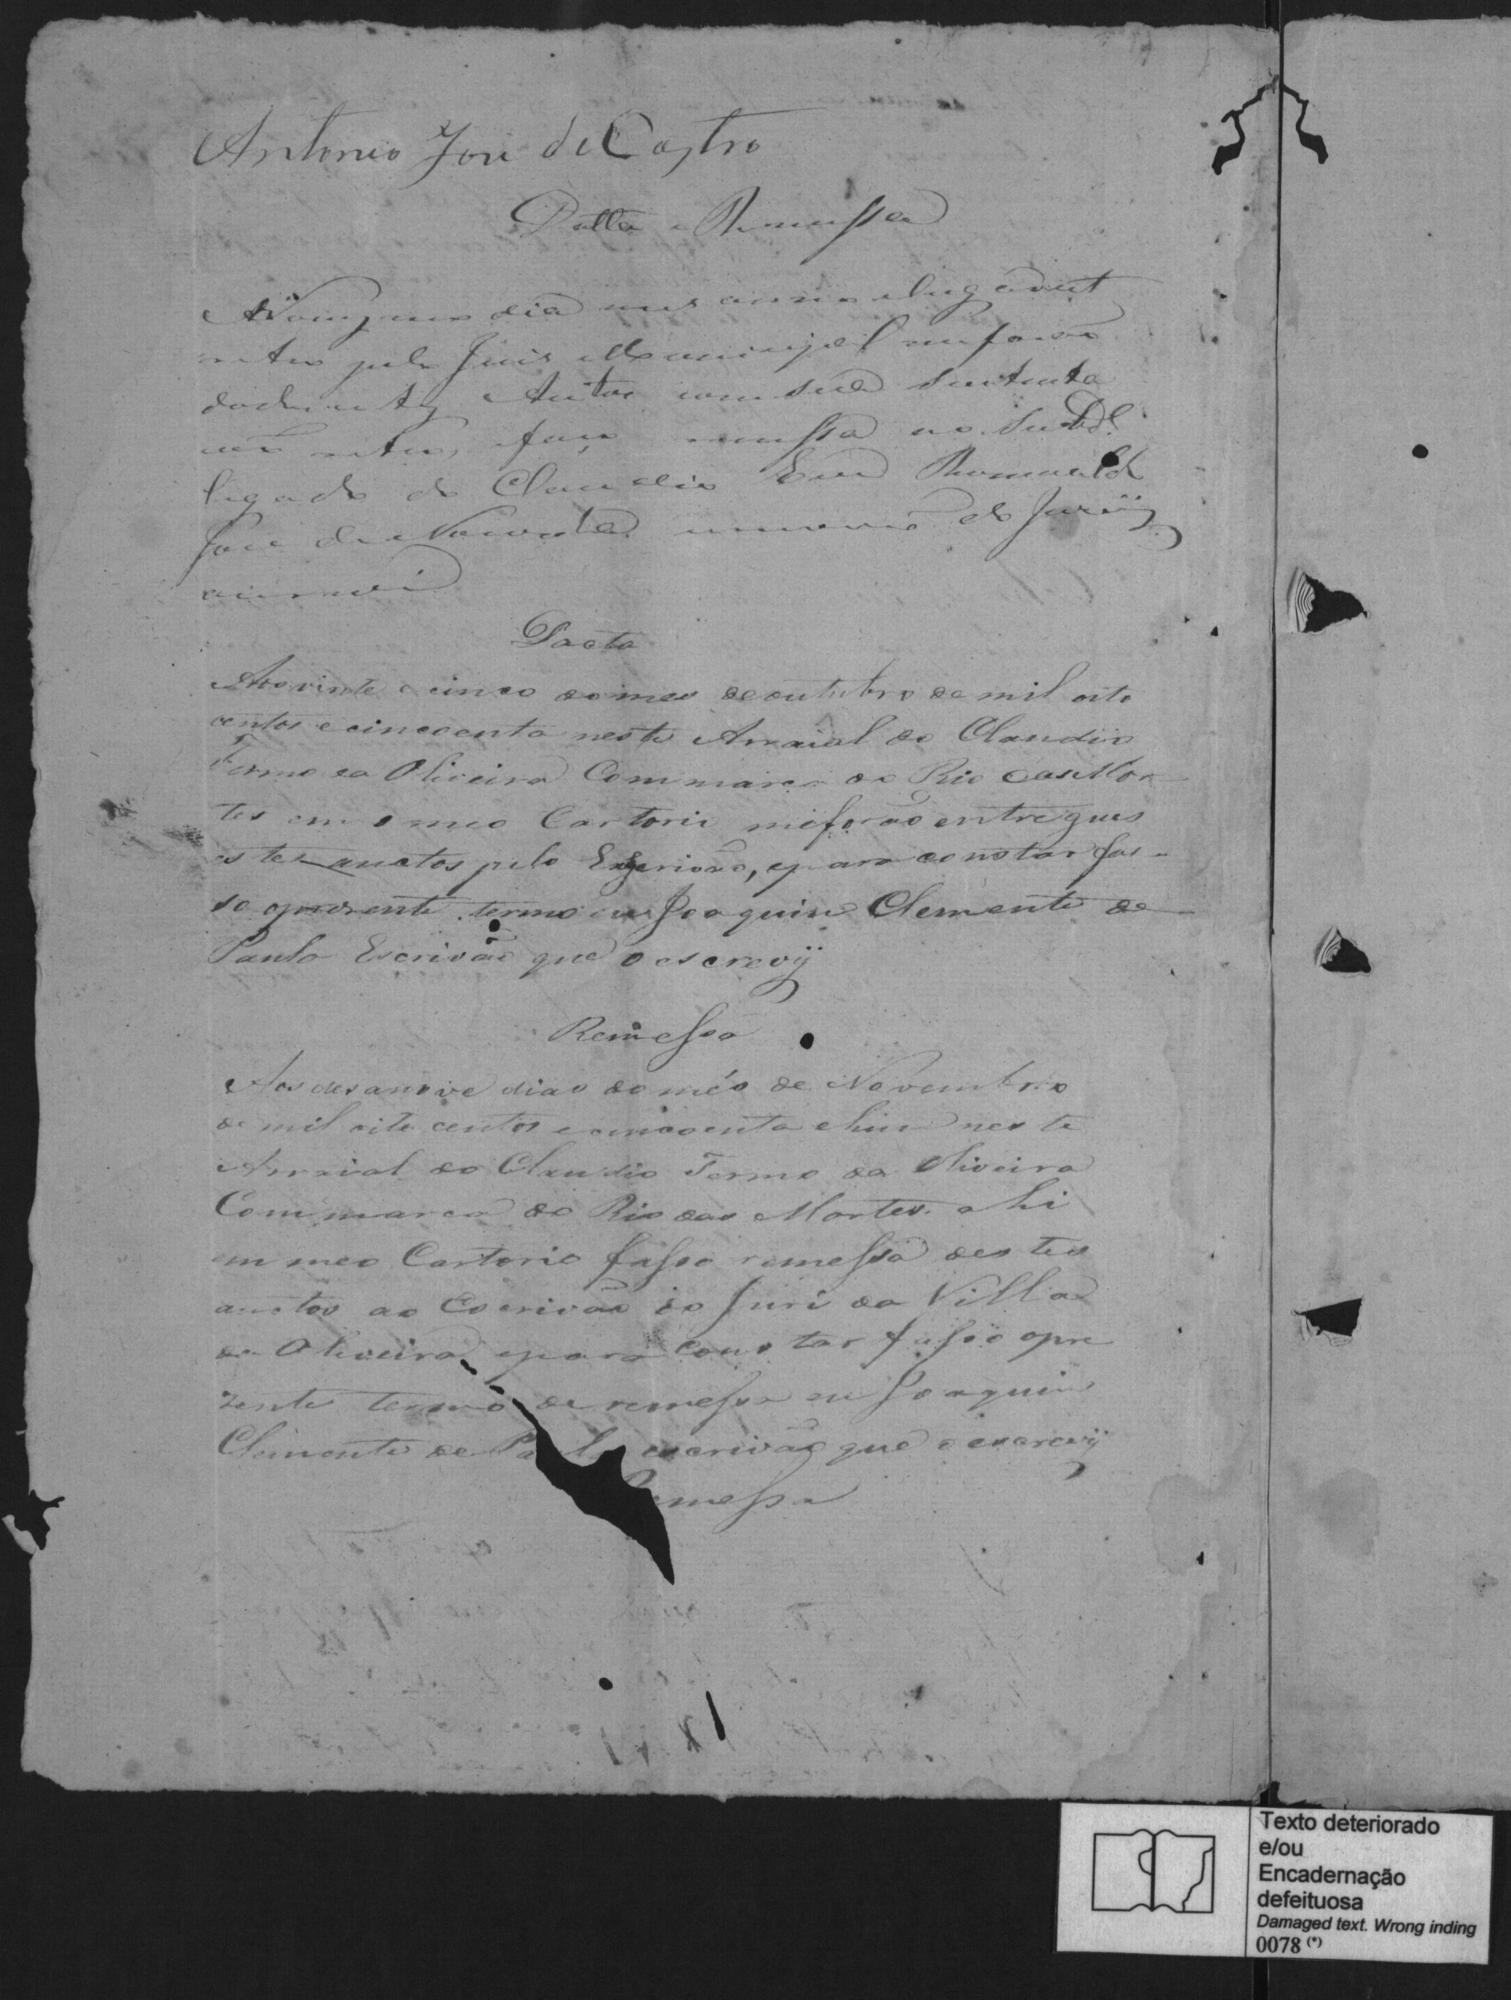 Antonio José de Castro
Datta e Remessa
No mesmo dia mes anno e lugar out
retro pelo Juis Municipal me forão
dados estes Autos com sua Sentença
retro, faço remessa ao Subde
legado do Claudio Eu Romualdo
José de escrivão do Jury
escrevi
Dacta
Aos vinte e cinco do mes de outubro de mil oito
centos e cincoenta neste Arraial do Claudio
Termo da Oliveira Commarca do Rio das Mor
tes em o meo Cartorio me forão entregues
estes auctos pelo Escrivão, e para constar fas-
so o prezente termo eu Joaquim Clemente de
Paula Escrivão que o escrevÿ
Remessa
Aos desanove dias do mês de Novembro
de mil oito centos e cincoenta e hum neste
Arraial do Claudio Termo da Oliveira
Commarca do Rio das Mortes ahi
em meo Cartorio fasso remessa destes
auctos ao Escrivão do Juri da Villa
da Oliveira, e para constar fasso o pre
zente termo de remessa eu Joaquim
Clemente de Paula escrivão que o escrevÿ
Remessa
Texto deteriorado
e/ou
Encadernação
defeituosa
Damaged text. Wrong inding
0078 (*)